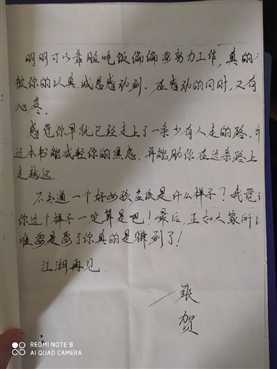 明明可以靠脸吃饭偏偏要努力工作，真的
被你的认真诚恳感动到。在感动的同时，又有
心疼。
感觉你早就已经走上了一条少有人走的路，
这本书能减轻你的焦虑，再能助你在这条路上
走稳远
不知道一个好的孩子是什么样子？我觉
你这个样子一定算是吧！最后，正如大家所
难受是为了你真的是够到了！
江湖再见
张
贺
REDMI NOTE 8
AI QUAD CAMERA